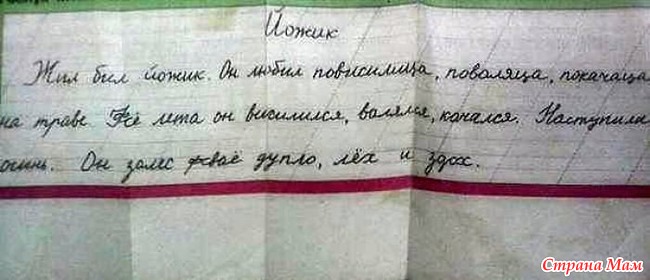 Йожик
Жил бил йожик. Он любил повисилица, поваляца, покачаца
на траве. Фсё лета он висилился, валялся, качался. Наступила
осинь. Он залес фсваё дупло, лёх и здох.
Страна Мам